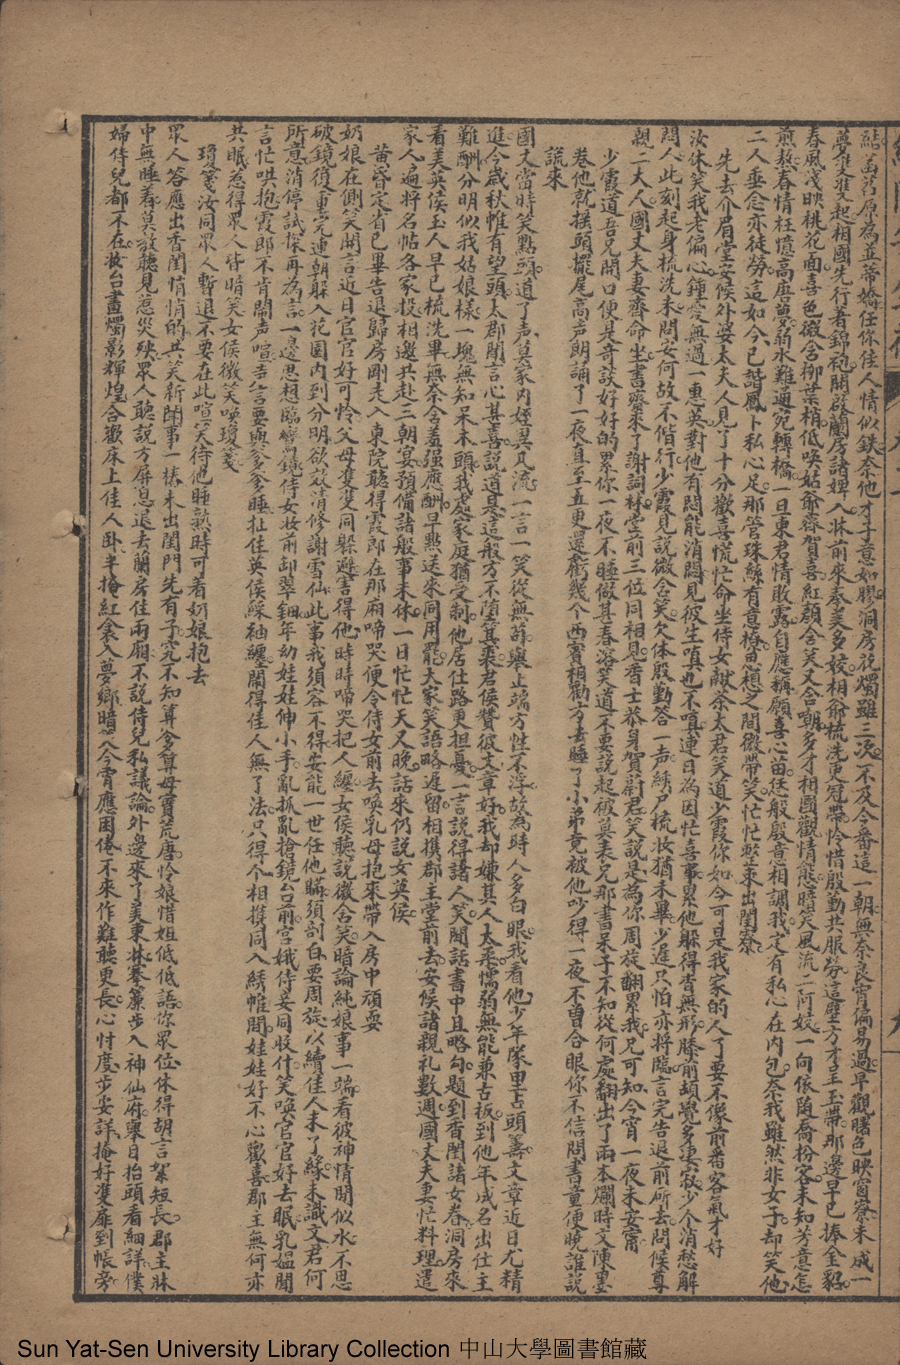 結菡萏原為並蒂嬌任你佳人情似鉄奈他才子意如膠洞房花燭雖三次不及今番這一朝無奈良宵偏易過早觀曙色映窗寮未成一
夢雙雙起相國先行著錦袍開啟蘭房諸婢入牀前來奉美多嬌相爺梳洗更冠帶怜惜殷勤共服勞這壁方才呈玉帶那邊早已捧金貂
春風淺映桃花面喜色微含柳葉梢低喚姑爺齊賀喜紅顏含笑又含嘲多才相國觀情態暗笑風流二阿姣一向依隨喬扮客未知芳意怎
煎熬春情枉憶高唐夢弱水難通宛轉橋一旦東君情敢露自應稱願喜心苗恁般殷意相調我定有私心在內包奈我雖然非女子却笑他
二人垂念亦徒勞這如今已諧鳳卜私心足那管珠絲有意撩思想之間微帶笑忙忙整束出閨寮
先去介眉堂安候外婆太夫人見了十分歡喜慌忙命坐侍女献茶太君笑道少霞你如今可是我家的人了要不像前番客氣才好
汝休笑我老偏心鍾愛無過一惠英對他有悶能消悶見彼生嗔也不嗔連日為因忙喜事累他躲得杳無形膝前頓覺多凄寂少个消愁解
悶人此刻起身梳洗未問安何故不偕行少霞見說微含笑欠体殷勤答一声綉戸梳妆猶未畢少遲只怕亦將臨言完告退前所去問候尊
親二大人國丈夫妻齊命坐書齋來了謝詞林堂前三位同相見香士恭身賀蔚君笑說是為你周旋翻累我兄可知今宵一夜未安甯
少霞道吾兄開口便是奇談好好的累你一夜不睡做甚春溶笑道不要說起被莫表兄那書呆子不知從何處翻出了兩本爛時文陳墨
卷他就揺頭擺尾高声朗誦了一夜直至五更還虧幾个西賓相勸方去睡了小弟竟被他吵得一夜不曽合眼你不信問書童便曉誰說
謊來
國丈當時笑點頭道了声莫家內姪異凡流一言一笑從無苟舉止端方性不浮故為時人多白眼我看他少年隊里占頭籌文章近日尤精
進今歲秋帷有望頭太郡聞言心甚喜說道是這般方不墮箕裘君侯贊彼文章好我却嫌其人太柔懦弱無能兼古板到他年成名出仕主
難酬分明似我姑娘樣一塊無知呆木頭我處家庭猶受制他居仕路更担憂一言說得諸人笑閒話書中且略勾題到香閨諸女眷洞房來
看美英侯玉人早已梳洗畢無奈含羞强應酬早點送來同用罷大家笑語略遲留相携郡主堂前去安候諸親礼數週國丈夫妻忙料理遣
家人遍將名帖各家投相邀共赴三朝宴預備諸般事未休一日忙忙天又晚話來仍說女英侯
黄昏定省已畢告退歸房剛走入東院聽得霞郎在那廂啼哭便令侍女前去喚乳母抱來帶入房中頑耍
奶娘在側笑開言近日官官好可怜父母雙雙同躲避害得他時時啼哭把人纏女侯聽說微含笑暗論純娘事一端看彼神情閒似水不思
破鏡復重完連朝躲入花園內到分明欲效清修謝雪仙此事我須容不得安能一世任他瞞須剖白要周旋以續佳人未了緣未識文君何
所意消停試探再為言一邊思想臨鸞鏡侍女妝前卸翠鈿年幼娃娃伸小手亂抓亂搶鏡台前宮娥侍妾同收什笑喚官官好去眠乳媼聞
言忙哄抱霞郎不肯鬧声喧声言要與爹爹睡扯住英侯綵袖纏鬧得佳人無了法只得个相携同入綉帷間娃娃好不心歡喜郡主無何亦
共眠惹得眾人皆暗笑女侯微笑喚瓊箋
瓊箋汝同眾人暫退不要在此喧笑待他睡熟時可着奶娘抱去
眾人答應出香閨悄悄的共笑新聞事一樁未出閨門先有子究不知算爹算母費荒唐怜娘惜姐低低語你眾位休得胡言絮短長郡主牀
中無睡着莫教聽見惹災殃眾人聽說方屏息退去蘭房住兩廂不說侍兒私議論外邊來了美東牀搴簾步入神仙府舉目抬頭看細詳僕
婦侍兒都不在妝台畫燭影輝煌合歡床上佳人卧半掩紅衾入夢鄉暗笑今宵應困倦不來作難聽更長心忖度步安詳掩好雙扉到帳旁
Sun Yat-Sen University Library Collection 中山大學圖書館藏